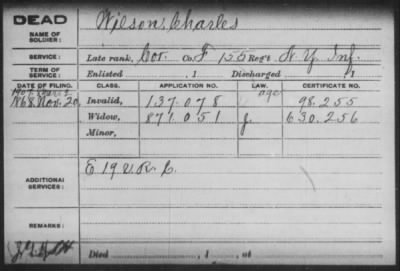 DEAD
NAME OF SOLDIER: Wilson, Charles
SERVICE: Late rank, Cor. Co. F 155 Reg't N.Y. Inf.
TERM OF SERVICE: Enlisted , 1 Discharged , 1
DATE OF FILING. CLASS. APPLICATION NO. LAW. CERTIFICATE NO.
1907
age
1868. Nov. 20, Invalid, 137.078 98.255
Widow, 871.051 J. 630.256
Minor,
ADDITIONAL SERVICES: E 19 V.R.C.
REMARKS:
Died , 1 , at